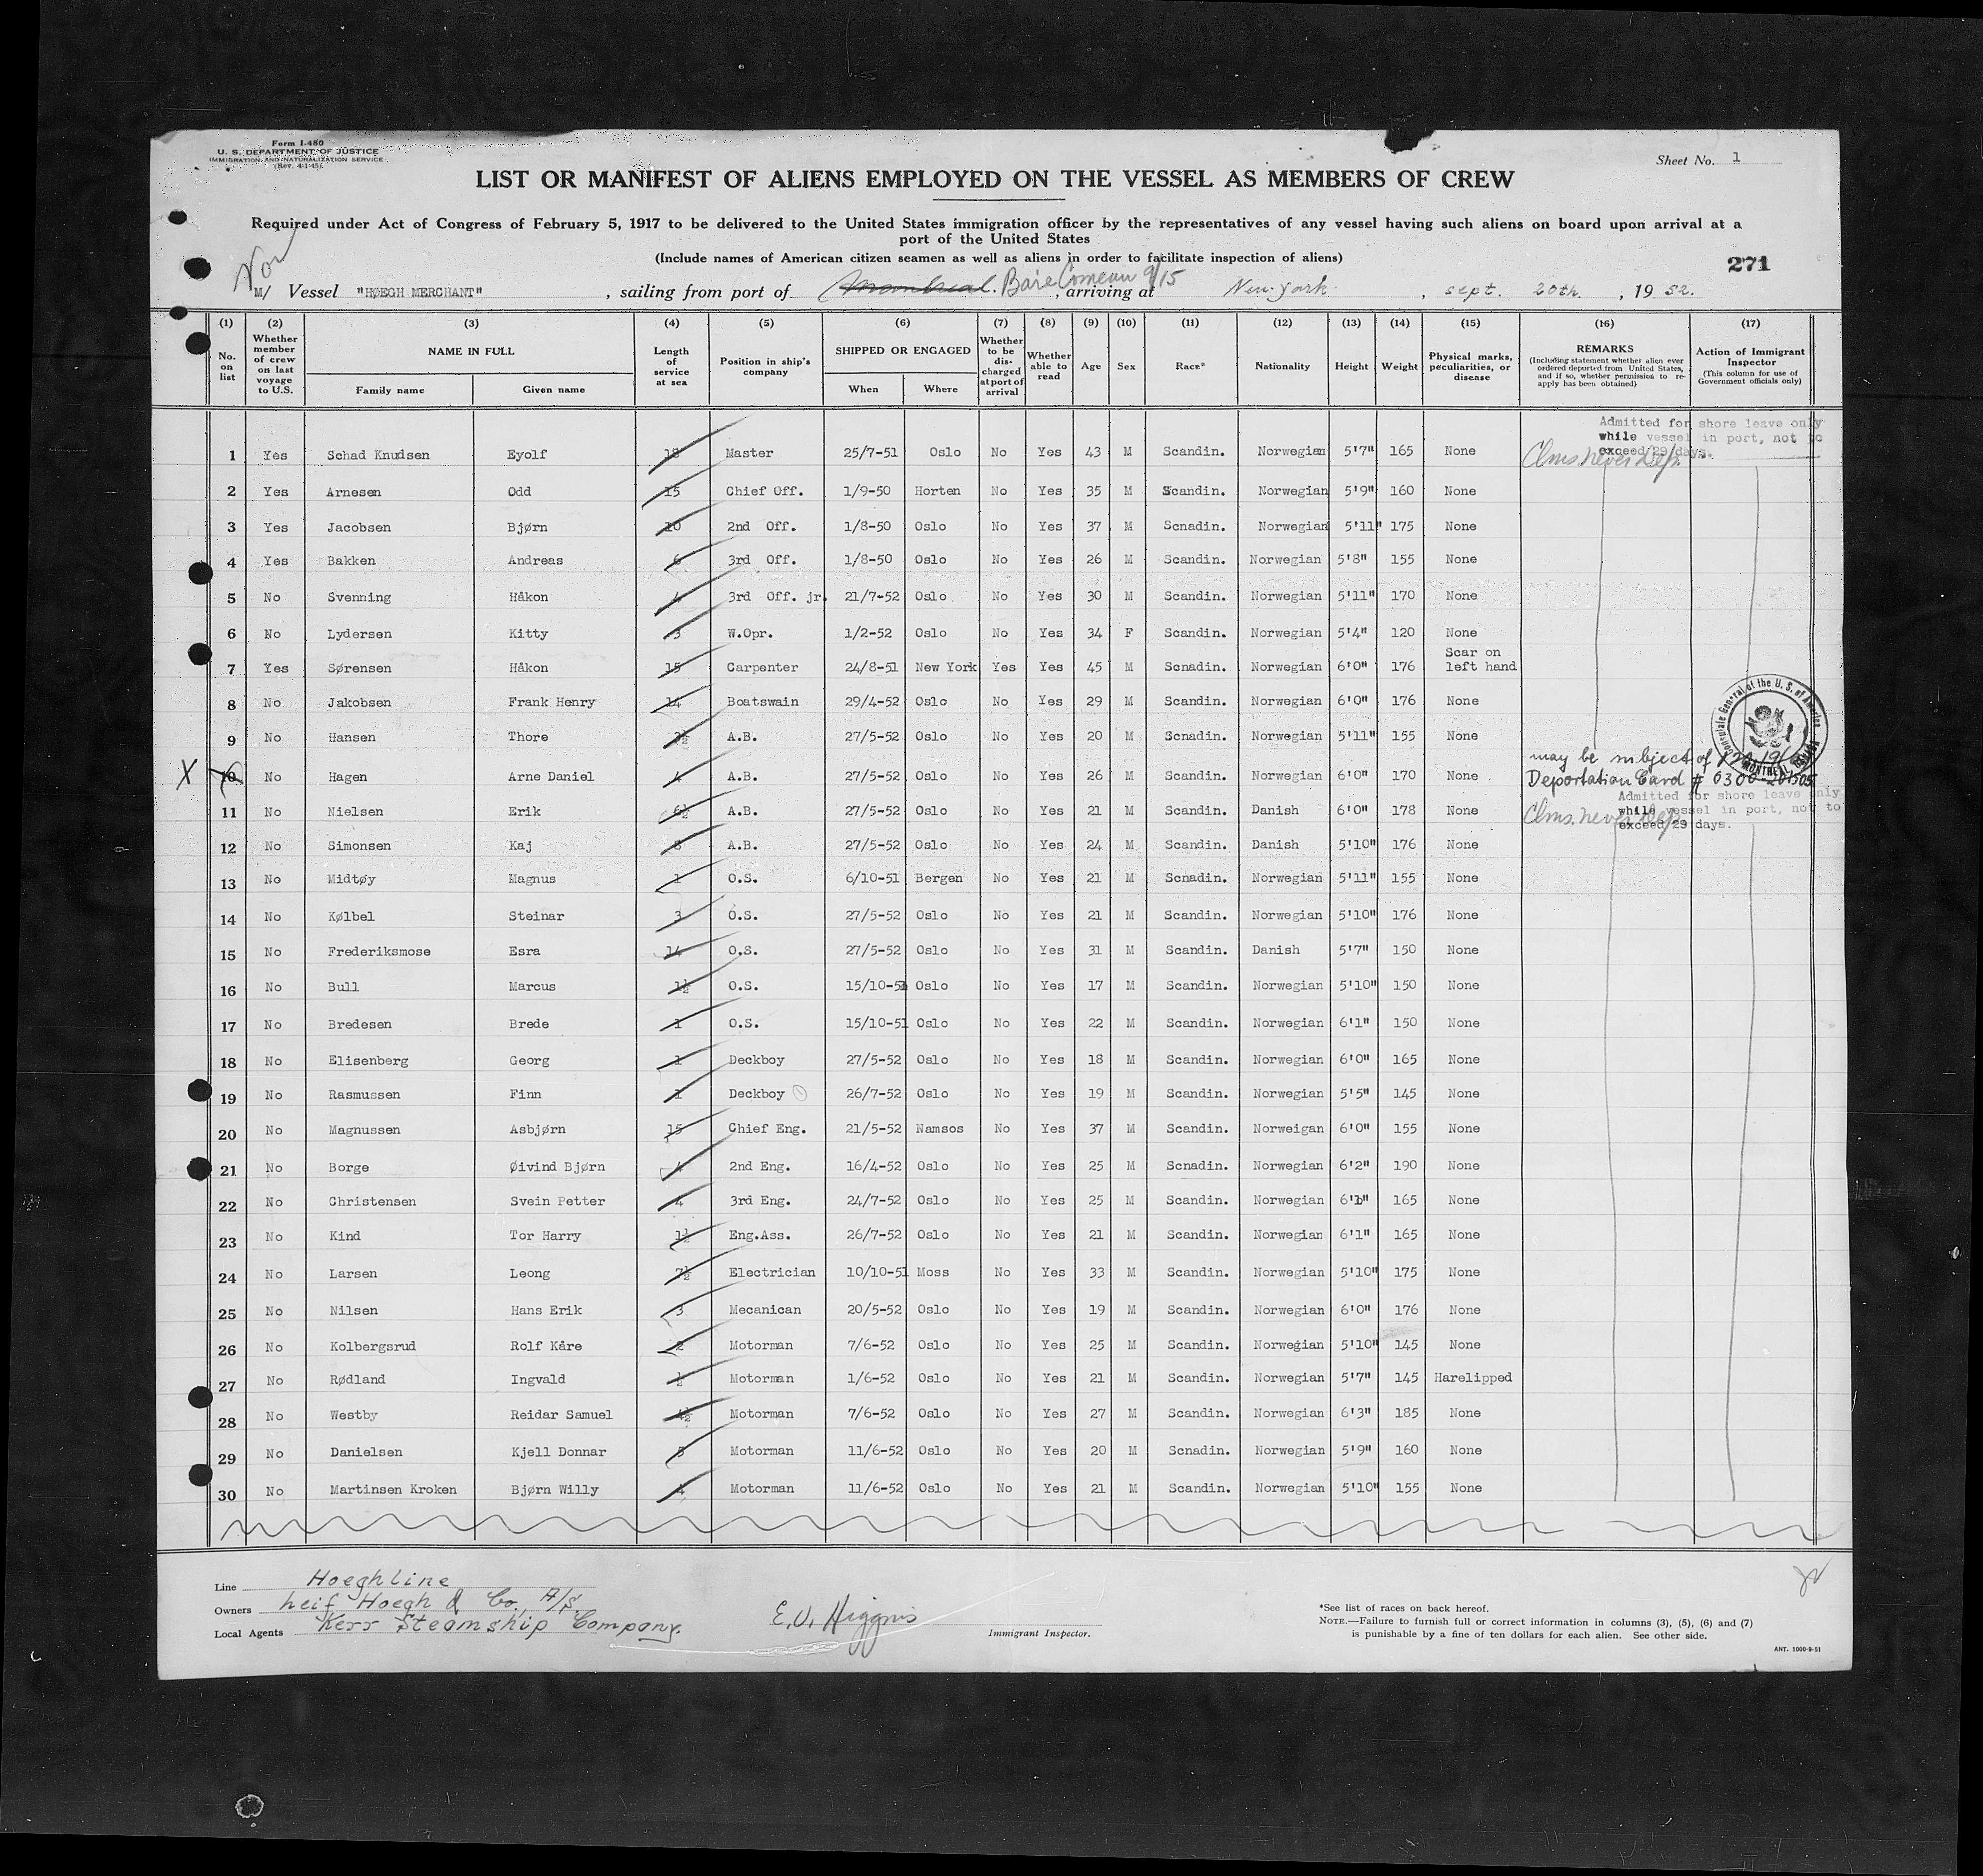 Form I-480
U. S. DEPARTMENT OF JUSTICE
IMMIGRATION AND NATURALIZATION SERVICE
(Rev. 4-1-45)
Sheet No. 1
LIST OR MANIFEST OF ALIENS EMPLOYED ON THE VESSEL AS MEMBERS OF CREW
Required under Act of Congress of February 5, 1917 to be delivered to the United States immigration officer by the representatives of any vessel having such aliens on board upon arrival at a
port of the United States
(Include names of American citizen seamen as well as aliens in order to facilitate inspection of aliens)
271
Nor
M/ Vessel "HØEGH MERCHANT", sailing from port of Montreal. Baie Comeau 9/15, arriving at New-York, sept. 20th, 19 52.
(1) (2) (3) (4) (5) (6) (7) (8) (9) (10) (11) (12) (13) (14) (15) (16) (17)
No. on list
Whether member of crew on last voyage to U.S.
NAME IN FULL
Family name Given name
Length of service at sea
Position in ship's company
SHIPPED OR ENGAGED
When Where
Whether to be discharged at port of arrival
Whether able to read
Age
Sex
Race*
Nationality
Height
Weight
Physical marks, peculiarities, or disease
REMARKS
(Including statement whether alien ever ordered deported from United States, and if so, whether permission to reapply has been obtained)
Action of Immigrant Inspector
(This column for use of Government officials only)
Admitted for shore leave only
while vessel in port, not to
exceed 29 days.
1 Yes Schad Knudsen Eyolf 18 Master 25/7-51 Oslo No Yes 43 M Scandin. Norwegian 5'7" 165 None Clms. never Dep.
2 Yes Arnesen Odd 15 Chief Off. 1/9-50 Horten No Yes 35 M Scandin. Norwegian 5'9" 160 None
3 Yes Jacobsen Bjørn 10 2nd Off. 1/8-50 Oslo No Yes 37 M Scnadin. Norwegian 5'11" 175 None
4 Yes Bakken Andreas 6 3rd Off. 1/8-50 Oslo No Yes 26 M Scandin. Norwegian 5'8" 155 None
5 No Svenning Håkon 4 3rd Off. jr. 21/7-52 Oslo No Yes 30 M Scandin. Norwegian 5'11" 170 None
6 No Lydersen Kitty 3 W.Opr. 1/2-52 Oslo No Yes 34 F Scandin. Norwegian 5'4" 120 None
7 Yes Sørensen Håkon 15 Carpenter 24/8-51 New York Yes Yes 45 M Scnadin. Norwegian 6'0" 176 Scar on left hand
8 No Jakobsen Frank Henry 14 Boatswain 29/4-52 Oslo No Yes 29 M Scandin. Norwegian 6'0" 176 None
9 No Hansen Thore A.B. 27/5-52 Oslo No Yes 20 M Scnadin. Norwegian 5'11" 155 None
Consulate General of the U. S. of America
MONTREAL, CANADA
may be subject of
X 10 No Hagen Arne Daniel 4 A.B. 27/5-52 Oslo No Yes 26 M Scandin. Norwegian 6'0" 170 None Deportation Card # 0300-
Admitted for shore leave only
while vessel in port, not to
exceed 29 days.
11 No Nielsen Erik 6½ A.B. 27/5-52 Oslo No Yes 21 M Scandin. Danish 6'0" 178 None Clms. never Dep.
12 No Simonsen Kaj 8 A.B. 27/5-52 Oslo No Yes 24 M Scandin. Danish 5'10" 176 None
13 No Midtøy Magnus 1 O.S. 6/10-51 Bergen No Yes 21 M Scnadin. Norwegian 5'11" 155 None
14 No Kølbel Steinar 3 O.S. 27/5-52 Oslo No Yes 21 M Scandin. Norwegian 5'10" 176 None
15 No Frederiksmose Esra 14 O.S. 27/5-52 Oslo No Yes 31 M Scandin. Danish 5'7" 150 None
16 No Bull Marcus 1½ O.S. 15/10-51 Oslo No Yes 17 M Scandin. Norwegian 5'10" 150 None
17 No Bredesen Brede 1 O.S. 15/10-51 Oslo No Yes 22 M Scandin. Norwegian 6'1" 150 None
18 No Elisenberg Georg 1 Deckboy 27/5-52 Oslo No Yes 18 M Scandin. Norwegian 6'0" 165 None
19 No Rasmussen Finn 1 Deckboy 26/7-52 Oslo No Yes 19 M Scandin. Norwegian 5'5" 145 None
20 No Magnussen Asbjørn 15 Chief Eng. 21/5-52 Namsos No Yes 37 M Scandin. Norweigan 6'0" 155 None
21 No Borge Øivind Bjørn 4 2nd Eng. 16/4-52 Oslo No Yes 25 M Scnadin. Norwegian 6'2" 190 None
22 No Christensen Svein Petter 4 3rd Eng. 24/7-52 Oslo No Yes 25 M Scandin. Norwegian 165 None
23 No Kind Tor Harry 1½ Eng.Ass. 26/7-52 Oslo No Yes 21 M Scandin. Norwegian 6'1" 165 None
24 No Larsen Leong 7½ Electrician 10/10-51 Moss No Yes 33 M Scandin. Norwegian 5'10" 175 None
25 No Nilsen Hans Erik 3 Mecanican 20/5-52 Oslo No Yes 19 M Scandin. Norwegian 6'0" 176 None
26 No Kolbergsrud Rolf Kåre 2 Motorman 7/6-52 Oslo No Yes 25 M Scandin. Norwegian 5'10" 145 None
27 No Rødland Ingvald ½ Motorman 1/6-52 Oslo No Yes 21 M Scandin. Norwegian 5'7" 145 Harelipped
28 No Westby Reidar Samuel 4½ Motorman 7/6-52 Oslo No Yes 27 M Scandin. Norwegian 6'3" 185 None
29 No Danielsen Kjell Donnar Motorman 11/6-52 Oslo No Yes 20 M Scnadin. Norwegian 5'9" 160 None
30 No Martinsen Kroken Bjørn Willy 4 Motorman 11/6-52 Oslo No Yes 21 M Scandin. Norwegian 5'10" 155 None
Line Hoeghline
Owners Leif Hoegh & Co., A/S.
Local Agents Kerr Steamship Company.
E.V. Higgins
Immigrant Inspector.
*See list of races on back hereof.
NOTE.—Failure to furnish full or correct information in columns (3), (5), (6) and (7)
is punishable by a fine of ten dollars for each alien. See other side.
ANT. 1000-9-51